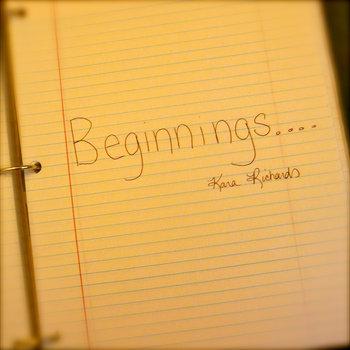 Beginnings....
Kara Richards